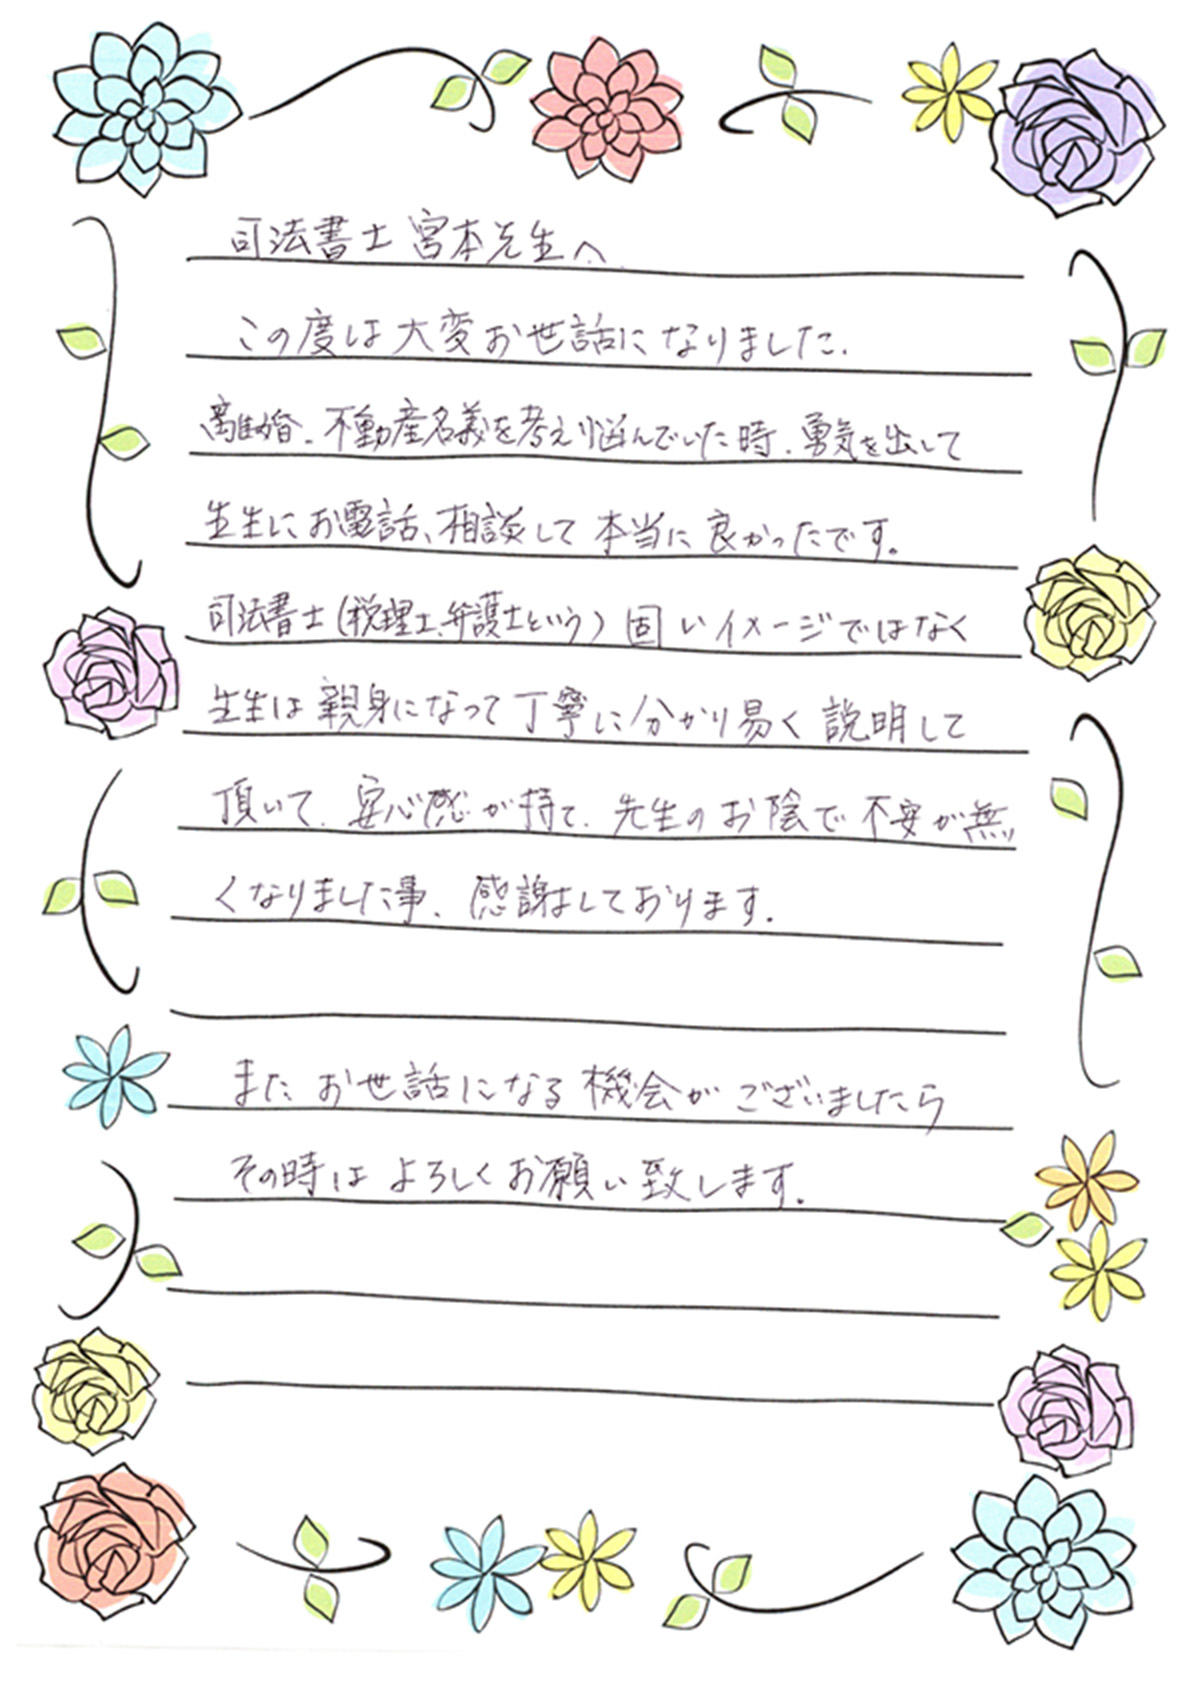 司法書士 宮本先生へ
この度は大変お世話になりました.
離婚、不動産名義を考え悩んでいた時、勇気を出して
先生にお電話、相談して本当に良かったです。
司法書士(税理士、弁護士という)固いイメージではなく
先生は親身になって丁寧に分かり易く説明して
頂いて、安心感が持て、先生のお陰で不安が無
くなりました事、感謝しております.
また お世話になる機会がございましたら
その時は よろしくお願い致します.